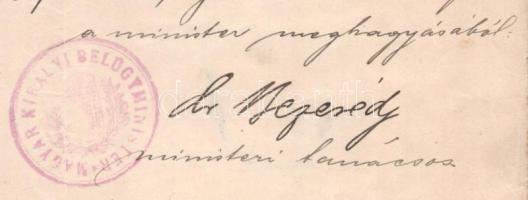 a minister meghagyásából:
MAGYAR KIRÁLYI BELÜGYMINISTER
dr Bezerédj
ministeri tanácsos